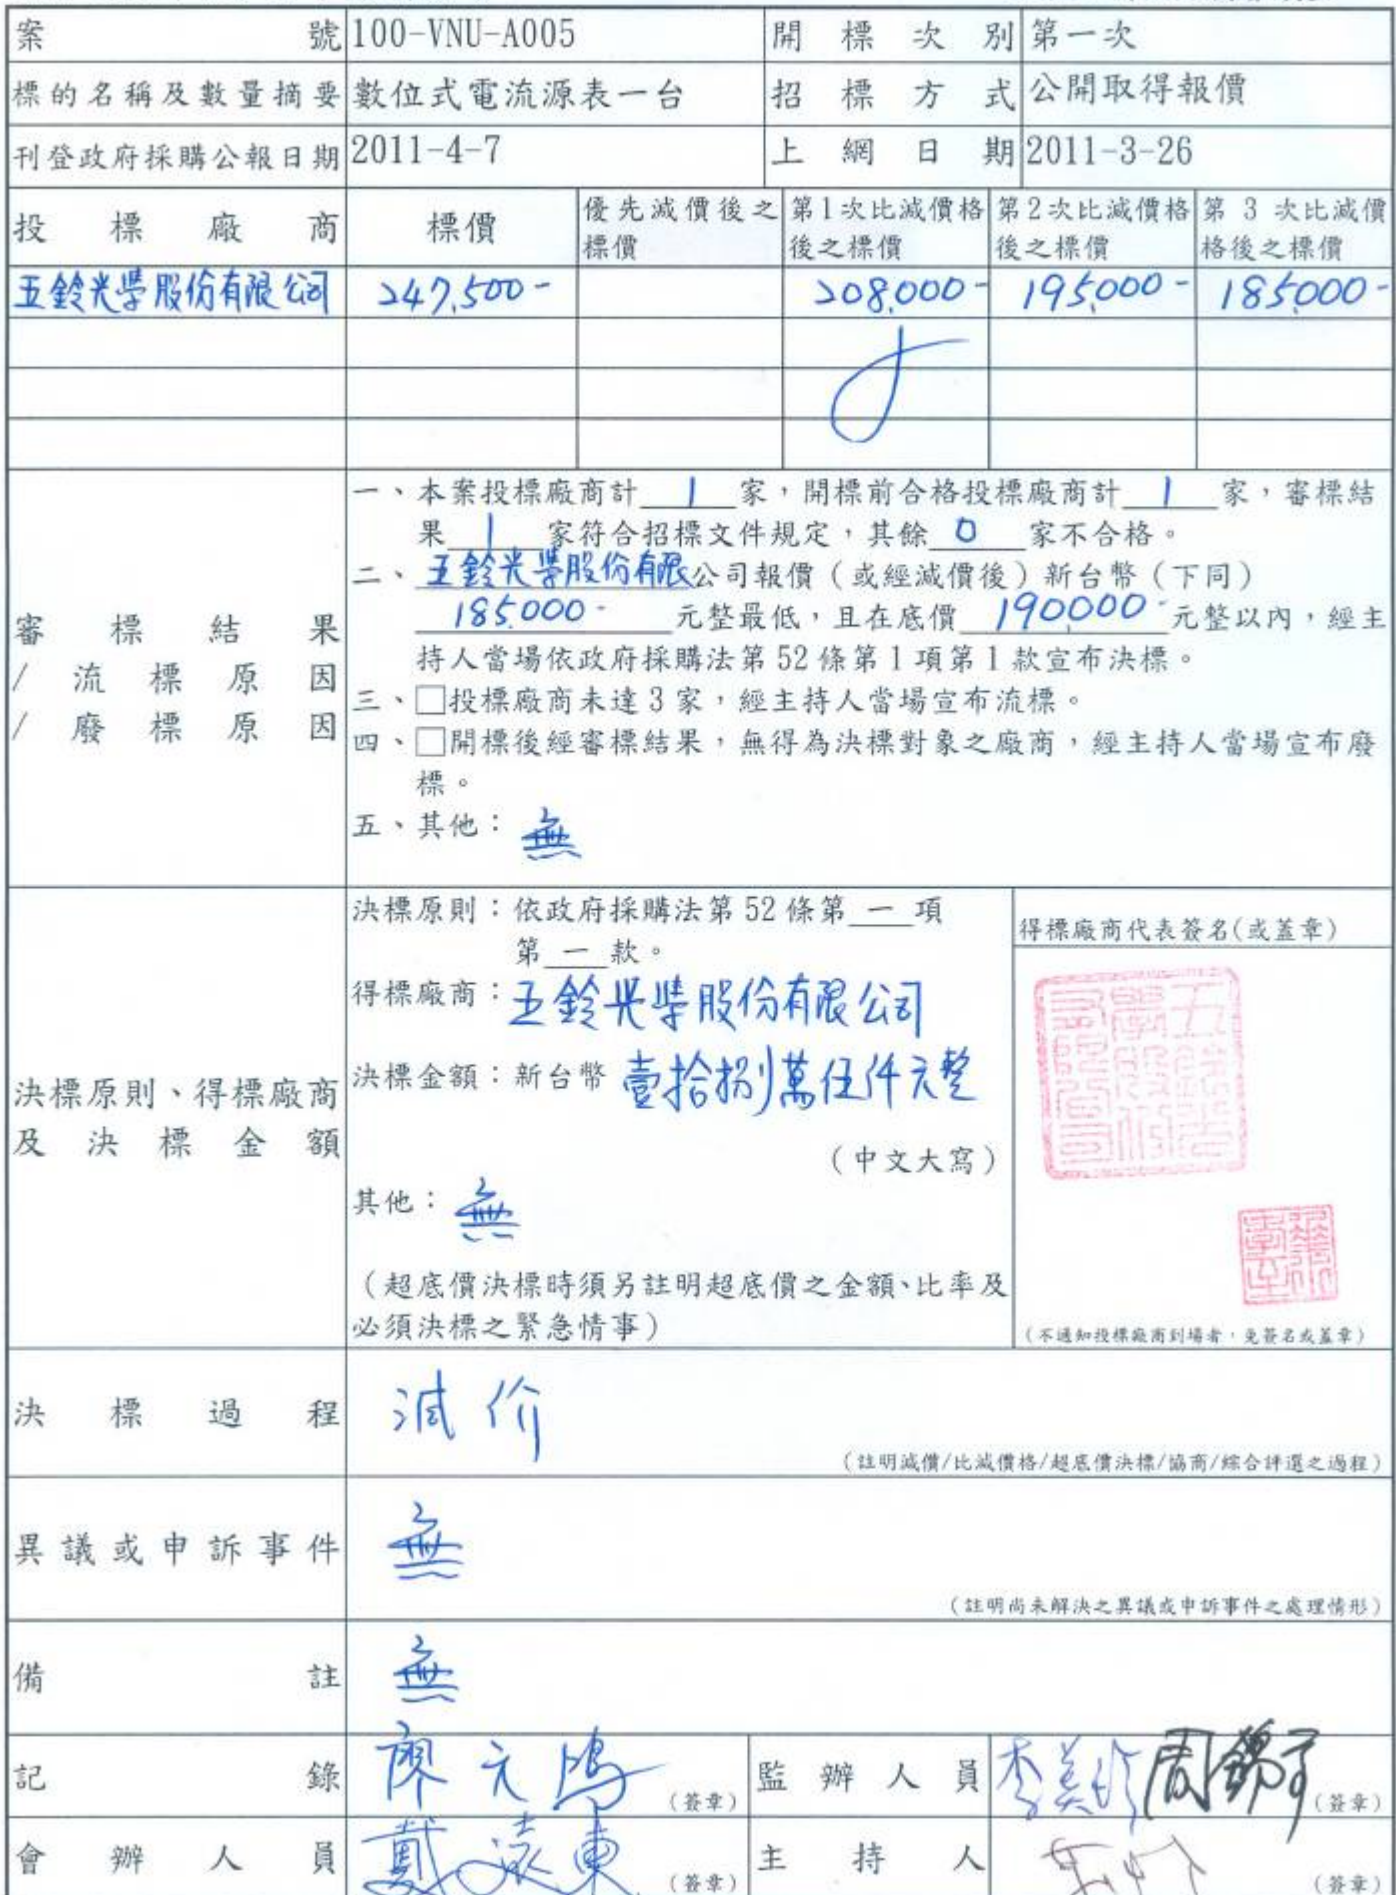 案號 100-VNU-A005 開標次別 第一次
標的名稱及數量摘要 數位式電流源表一台 招標方式 公開取得報價
刊登政府採購公報日期 2011-4-7 上網日期 2011-3-26
投標廠商 標價 優先減價後之標價 第1次比減價格後之標價 第2次比減價格後之標價 第 3 次比減價格後之標價
五鈴光學股份有限公司 247,500- 208,000- 195,000- 185,000-
審標結果
/流標原因
/廢標原因
一、本案投標廠商計 1 家,開標前合格投標廠商計 1 家,審標結
果 1 家符合招標文件規定,其餘 0 家不合格。
二、五鈴光學股份有限公司報價(或經減價後)新台幣(下同)
185,000- 元整最低,且在底價 190,000- 元整以內,經主
持人當場依政府採購法第 52 條第 1 項第 1 款宣布決標。
三、□投標廠商未達 3 家,經主持人當場宣布流標。
四、□開標後經審標結果,無得為決標對象之廠商,經主持人當場宣布廢
標。
五、其他:無
決標原則、得標廠商
及決標金額
決標原則:依政府採購法第 52 條第 一 項
第 一 款。
得標廠商:五鈴光學股份有限公司
決標金額:新台幣 壹拾捌萬伍仟元整
(中文大寫)
其他:無
(超底價決標時須另註明超底價之金額、比率及
必須決標之緊急情事)
得標廠商代表簽名(或蓋章)
(不通知投標廠商到場者,免簽名或蓋章)
決標過程 減价
(註明減價/比減價格/超底價決標/協商/綜合評選之過程)
異議或申訴事件 無
(註明尚未解決之異議或申訴事件之處理情形)
備註 無
記錄 廖元鴻 (簽章) 監辦人員 李美玲 (簽章)
會辦人員 戴遠東 (簽章) 主持人 (簽章)